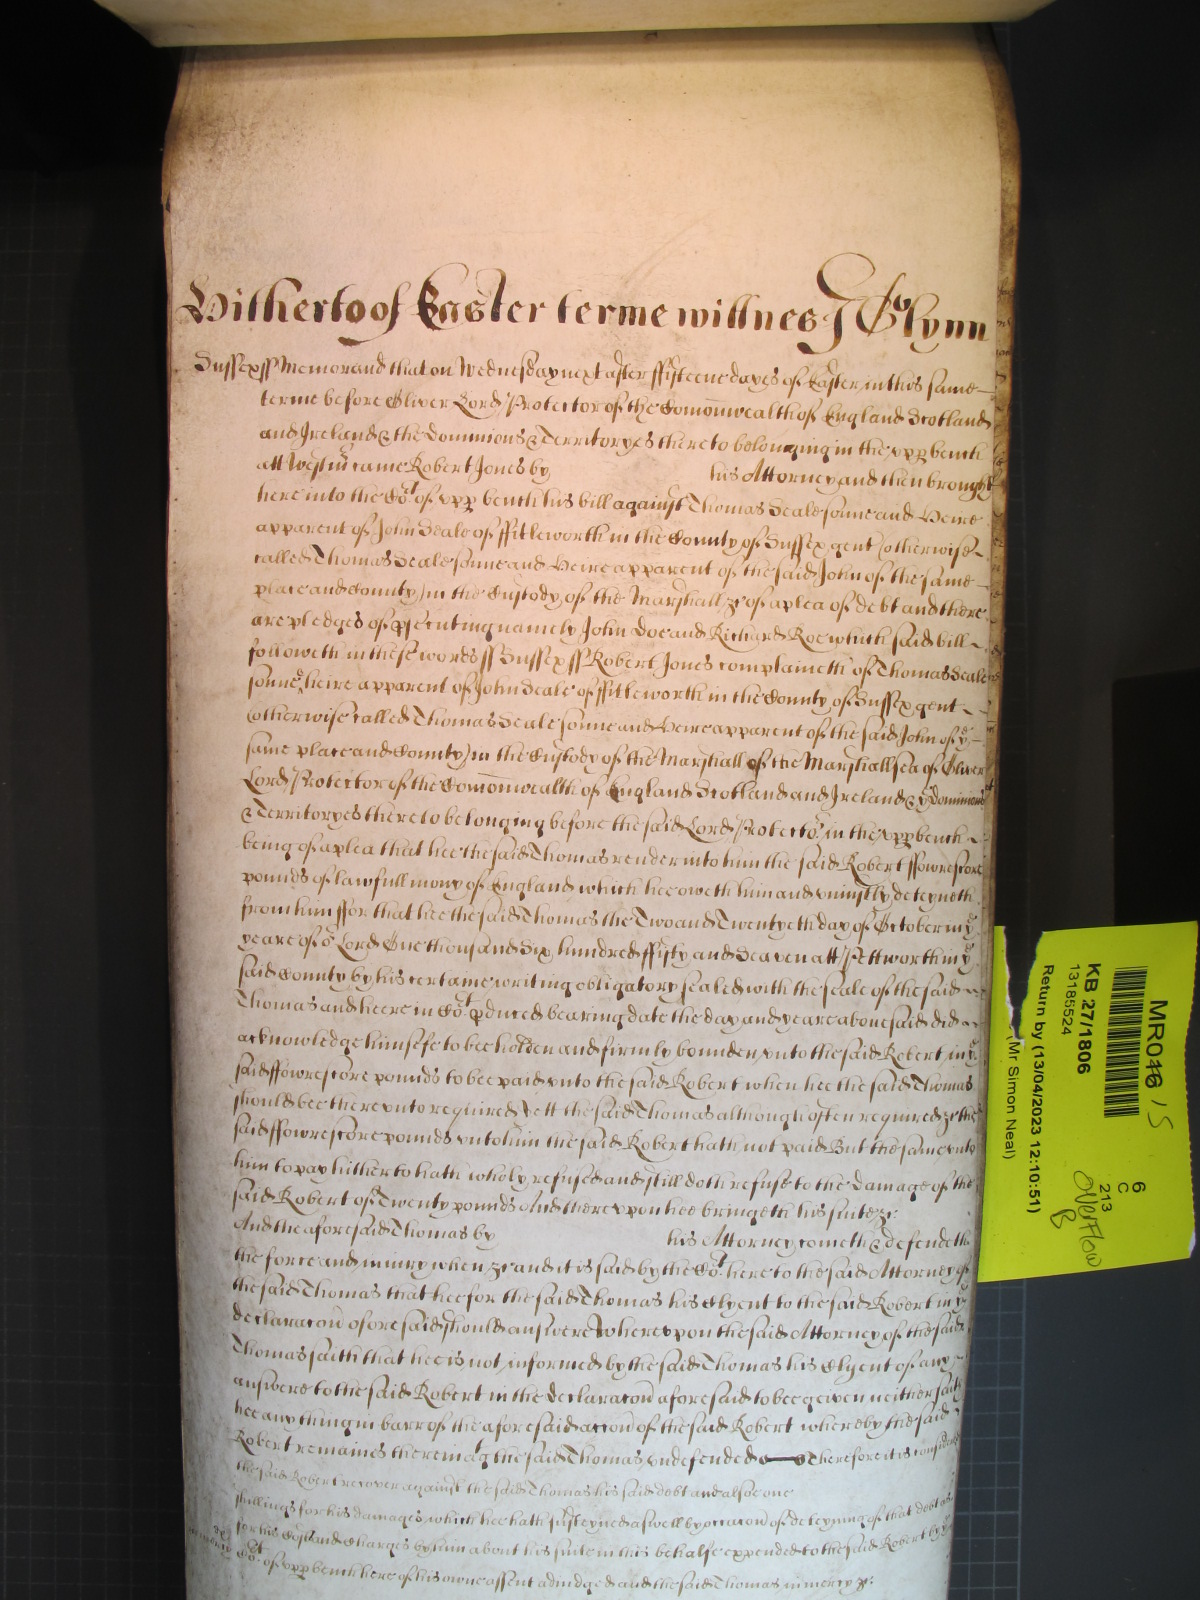 Hitherto of Easter terme wittnes J Glynn
Sussex ss Memorand that on Wednesday next after ffifteene dayes of Easter in this same
terme before Oliver Lord Protector of the Comonwealth of England Scotland
and Ireland & the Dominions & Territoryes thereto belonging in the upp bench
att Westm came Robert Jones by his Attorney and then brought
here into the Cot of upp bench his bill against Thomas Seale sonne and Heire
apparent of John Seale of ffitleworth in the County of Sussex gent (otherwise
called Thomas Seale sonne and Heire apparent of the said John of the same
place and County) in the Custody of the Marshall &c of a plea of debt and there
are pledges of psecuting namely John Doe and Richard Roe which said bill
followeth in these words ss Sussex ss Robert Jones complaineth of Thomas Seale
sonne & heire apparent of John Seale of ffitleworth in the County of Sussex gent
(otherwise called Thomas Seale sonne and Heire apparent of the said John of ye
same place and County) in the Custody of the Marshall of the Marshallsea of Oliver
Lord Protector of the Comonwealth of England Scotland and Ireland & ye Dominions
& Territoryes thereto belonging before the said Lord Protector in the upp bench
being of a plea that hee the said Thomas render unto him the said Robert ffowrescore
pounds of lawfull mony of England which hee oweth him and uniustly deteyneth
from him ffor that hee the said Thomas the Two and Twentyeth day of October in ye
yeare of or Lord One thousand Six hundred ffifty and Seaven att Pettworth in ye
said County by his certaine writing obligatory sealed with the seale of the said
Thomas and heere in Cot pduced bearing date the day and yeare abovesaid did
acknowledge himselfe to bee holden and firmly bounden unto the said Robert in ye
said ffowrescore pounds to bee paid unto the said Robert when hee the said Thomas
should bee thereunto required Yett the said Thomas although often required &c the
said ffowrescore pounds unto him the said Robert hath not paid But the same unto
him to pay hitherto hath wholy refused and still doth refuse to the damage of the
said Robert of Twenty pounds And thereupon hee bringeth his suite &c
And the aforesaid Thomas by his Attorney cometh & defendeth
the force and iniury when &c and it is said by the Cot here to the said Attorney of
the said Thomas that hee for the said Thomas his Clyent to the said Robert in ye
declaracon aforesaid should answere Whereupon the said Attorney of the said
Thomas saith that hee is not informed by the said Thomas his Clyent of any
answere to the said Robert in the declaracon aforesaid to bee given neither saith
hee any thing in barr of the aforesaid accon of the said Robert whereby the said
Robert remaines therein agt the said Thomas undefended Therefore it is considered
the said Robert recover against the said Thomas his said debt and alsoe one
shillings for his damages which hee hath susteyned aswell by occacon of deteyning of that debt as
for his Costs and Charges by him about his suite in this behalfe expended to the said Robert by ye
Cot of upp bench here of his owne assent adiudged and the said Thomas in mercy &c
MR046 15
KB 27/1806
13185524
Return by (13/04/2023 12:10:51)
(Mr Simon Neal)
6
C
213
Overflow
B